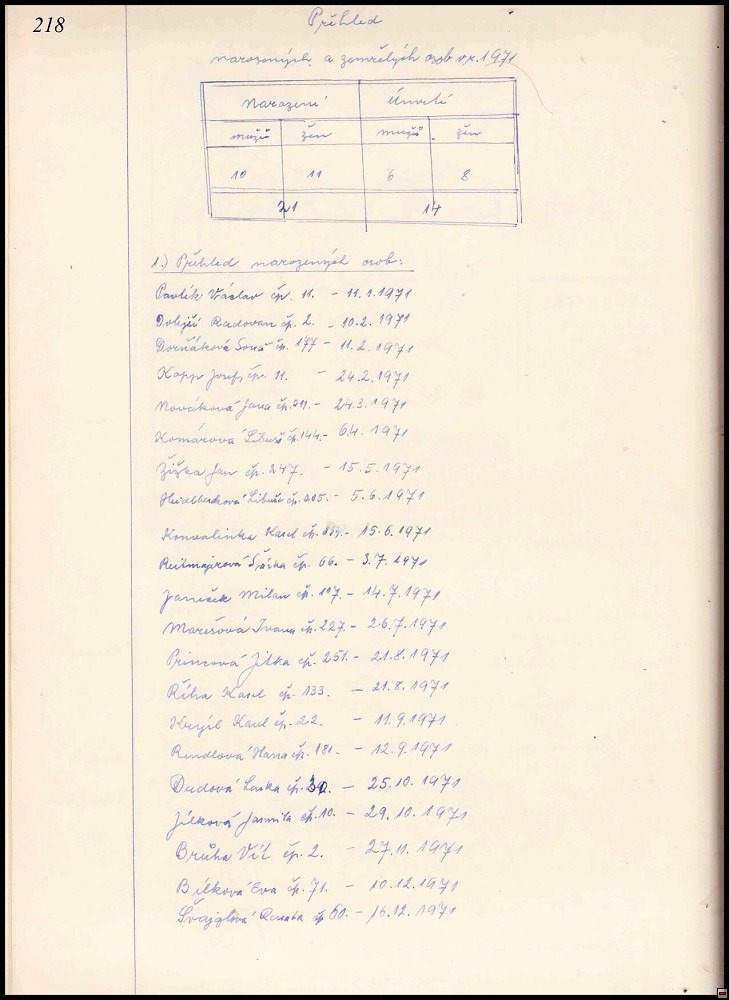 218
Přehled
narozených a zemřelých osob v r. 1971
Narození Úmrtí
mužů žen mužů žen
10 11 6 8
21 14
1.) Přehled narozených osob:
Pavlík Václav čp. 11. - 11.1.1971
Dolejší Radovan čp. 2. - 10.2.1971
Dorňáková Soňa čp. 177 - 11.2.1971
Kopp Josef, čp. 11. - 24.2.1971
Nováková Jana čp. 211. - 24.3.1971
Komárová Libuše čp. 144. - 6.4.1971
Žižka Jan čp. 247. - 15.5.1971
Libuše čp. 205. - 5.6.1971
Konvalinka Karel čp. - 15.6.1971
Reitmajerová Šárka čp. 66. - 3.7.1971
Janeček Milan čp. 117. - 14.7.1971
Marešová Ivana čp. 227. - 26.7.1971
Princová Jitka čp. 251. - 21.8.1971
Říha Karel čp. 133. - 21.8.1971
Karel čp. 22. - 11.9.1971
Rendlová Hana čp. 181. - 12.9.1971
Dudová Lenka čp. 30. - 25.10.1971
Jílková Jarmila čp. 10. - 29.10.1971
Brůha Vít čp. 2. - 27.11.1971
Bílková Eva čp. 71. - 10.12.1971
Švajglová Renata čp. 60. - 16.12.1971